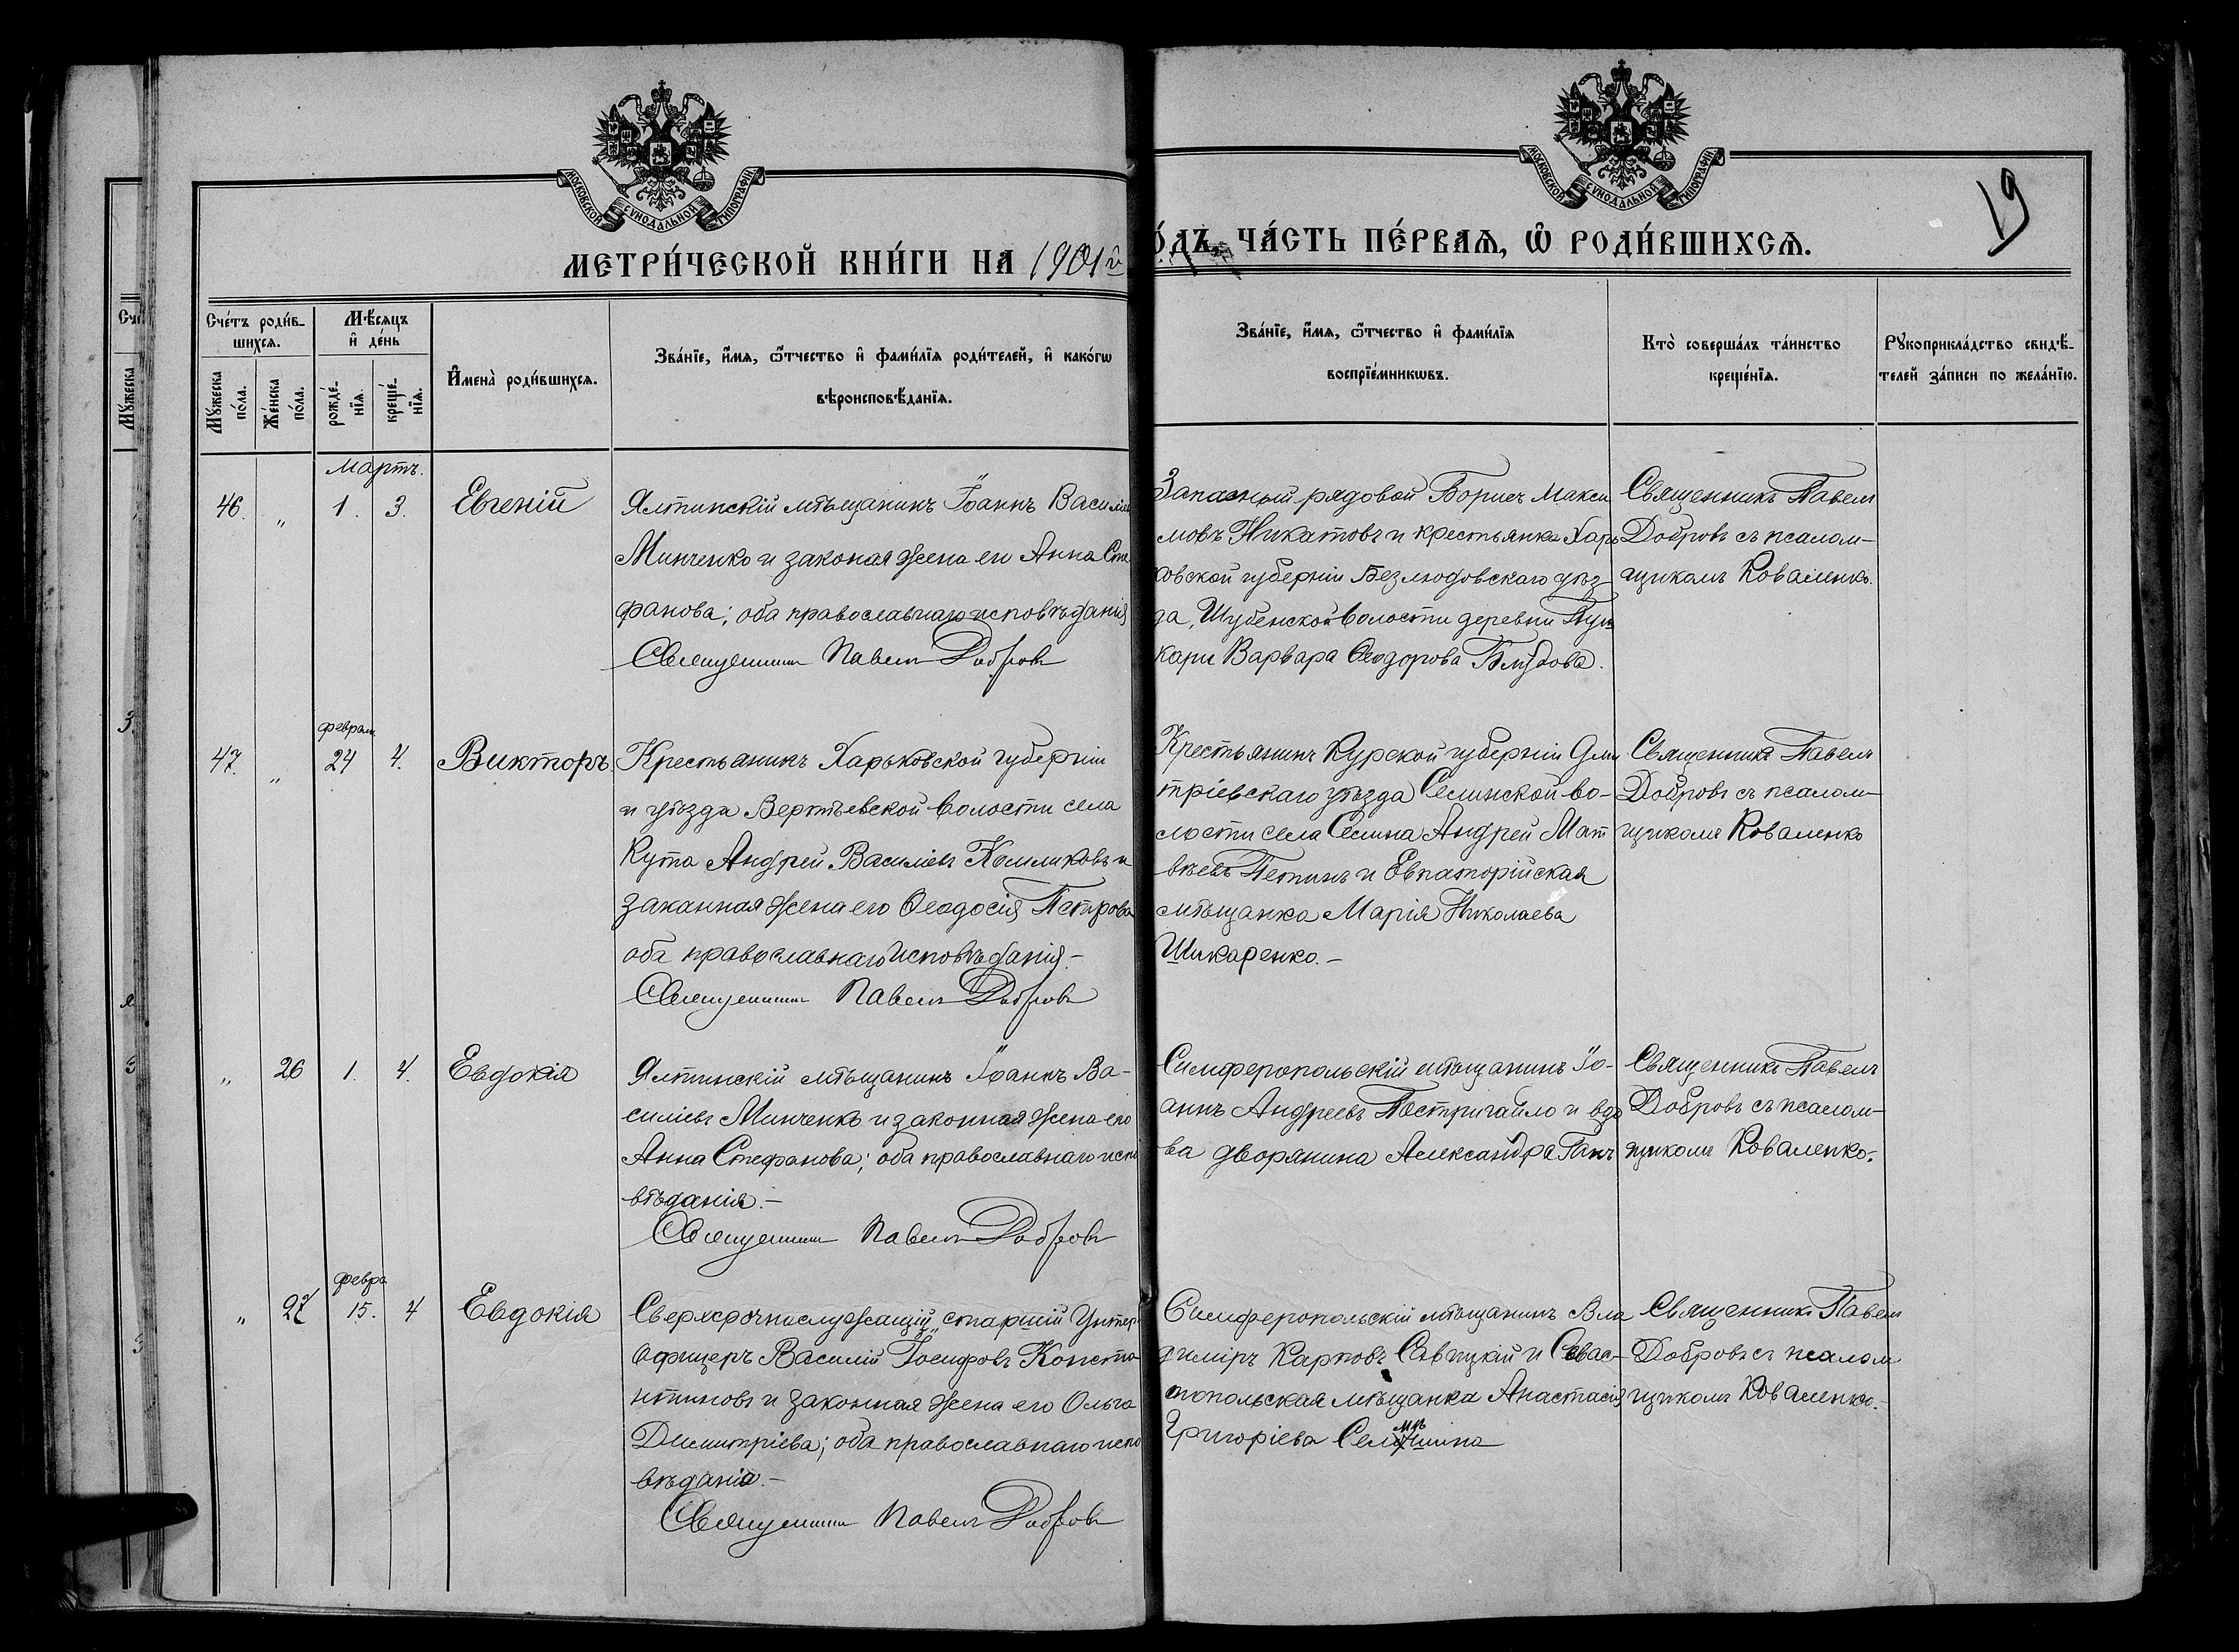 МОСКОВСКОЙ СУНОДАЛЬНОЙ ТИПОГРАФІИ
МОСКОВСКОЙ СУНОДАЛЬНОЙ ТИПОГРАФІИ
19
МЕТРИ́ЧЕСКОЙ КНИ́ГИ НА 1901й
О́ДЪ, ЧА́СТЬ ПЕ́РВАѦ, Ѽ РОДИ́ВШИХСѦ.
Сче́тъ роди́в-
шихсѧ.
Мꙋжеска
по́ла.
Же́нска
по́ла.
Мѣ́сѧцъ
и҆ де́нь
рожде́-
нїѧ.
креще́-
нїѧ.
И҆мена̀ роди́вшихсѧ.
Зва́нїе, и҆́мѧ, ѻ҆́тчество и҆ фами́лїѧ роди́телей, и҆ како́гѡ
вѣроисповѣ́данїѧ.
Зва́нїе, и҆́мѧ, ѻ҆́тчество и҆ фами́лїѧ
воспрїе́мникѡвъ.
Кто̀ соверша́лъ та́инство
креще́нїѧ.
Рꙋкоприкла́дство свидѣ́-
телей за́писи по жела́нїю.
Мартъ.
46. „ 1. 3. Евгеній
Ялтинскій мѣщанинъ Іоаннъ Василіев
Минченко и законая жена его Анна Сте
фанова; оба православнаго исповѣданія
Священникъ Павелъ Добровъ
Запасный рядовой Борисъ Макси
мовъ Никатовъ и крестьянка Харь
ковской губерніи Безлюдовскаго уѣз-
да, Шубенской волости деревни Пуш
кари Варвара Ѳеодорова
Священникъ Павелъ
Добровъ съ псалом-
щикомъ Коваленко.
Февраля
47. „ 24 4. Викторъ
Крестьянинъ Харьковской губерніи
и уѣзда Вертѣевской волости села
Кута Андрей Василіевъ и
законная жена его Ѳеодосія Петрова
оба православнаго исповѣданія.-
Священникъ Павелъ Добровъ
Крестьянинъ Курской губерніи Дми
тріевскаго уѣзда Селинской во-
лости села Селина Андрей Мат
вѣевъ Петинъ и Евпаторійская
мѣщанка Марія Николаева
Шикаренко.-
Священникъ Павелъ
Добровъ съ псалом-
щикомъ Коваленко
„ 26 1. 4. Евдокія
Ялтинскій мѣщанинъ Іоаннъ Ва-
силіевъ Минченко и законная жена его
Анна Стефанова; оба православнаго испо
вѣданія.-
Священникъ Павелъ Добровъ
Симферопольскій мѣщанинъ Іо-
аннъ Андреевъ Постригайло и вдо
ва дворянина Александра Ганъ
Священникъ Павелъ
Добровъ съ псалом-
щикомъ Коваленко.-
февра
„ 27 15. 4 Евдокія
Сверхсрочнослужащій, старшій Унтер
офицеръ Василій Іосифовъ Конста-
нтиновъ и законная жена его Ольга
Димитріева; оба православнаго испо
вѣданія.-
Священникъ Павелъ Добровъ
Симферопольскій мѣщанинъ Вла
диміръ Карповъ Савицкій и Севас-
топольская мѣщанка Анастасія
Григоріева
Священникъ Павелъ
Добровъ съ псалом
щикомъ Коваленко.-